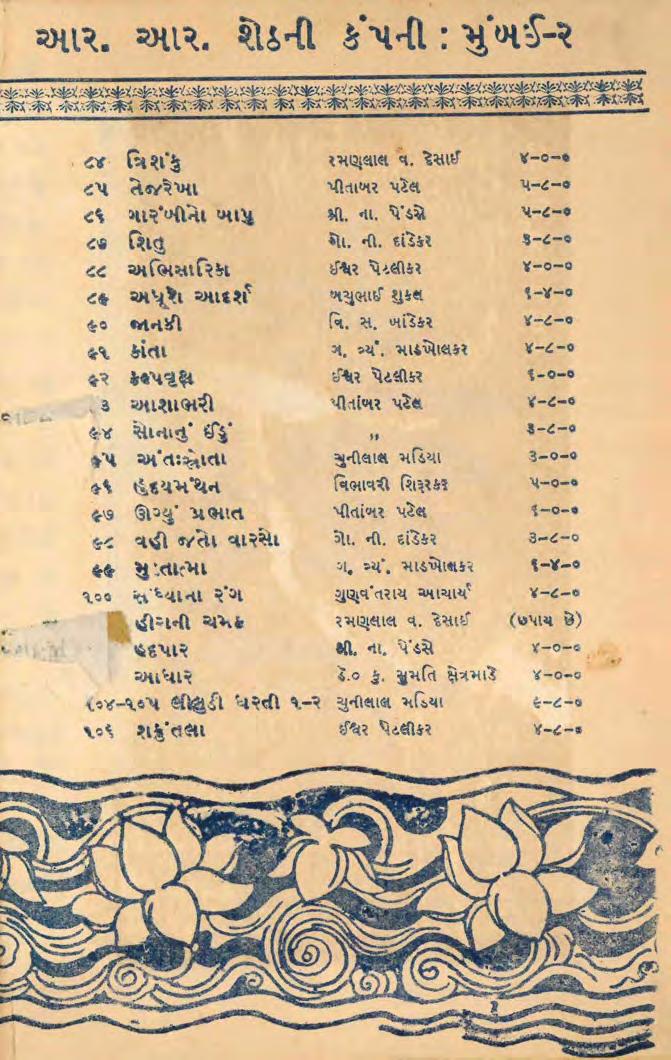 આર. આર. શેઠની કંપની : મુંબઈ-૨
૮૪ ત્રિશંકુ રમણલાલ વ. દેસાઈ ૪-૦-૦
૮૫ તેજરેખા પીતાંબર પટેલ ૫-૮-૦
૮૬ ગારંબીનો બાપુ શ્રી. ના. પેંડસે ૫-૮-૦
૮૭ શિતુ ગો. ની. દાંડેકર ૩-૮-૦
૮૮ અભિસારિકા ઈશ્વર પેટલીકર ૪-૦-૦
૮૯ અધૂરા આદર્શ બચુભાઈ શુક્લ ૬-૪-૦
૯૦ જાનકી વિ. સ. ખાંડેકર ૪-૮-૦
૯૧ કાંતા ગ. ત્ર્યં. માડખોલકર ૪-૮-૦
૯૨ કલ્પવૃક્ષ ઈશ્વર પેટલીકર ૬-૦-૦
૩ આશાભરી પીતાંબર પટેલ ૪-૮-૦
૯૪ સોનાનું ઈંડું ,, ૩-૮-૦
૯૫ અંતઃસ્રોતા ચુનીલાલ મડિયા ૩-૦-૦
૯૬ હૃદયમંથન વિભાવરી શિરૂરકર ૫-૦-૦
૯૭ ઊગ્યું પ્રભાત પીતાંબર પટેલ ૬-૦-૦
૯૮ વહી જતો વારસો ગો. ની. દાંડેકર ૩-૮-૦
૯૯ મુક્તાત્મા ગ. ત્ર્યં. માડખોલકર ૬-૪-૦
૧૦૦ સંધ્યાના રંગ ગુણવંતરાય આચાર્ય ૪-૮-૦
હીરાની ચમક રમણલાલ વ. દેસાઈ (છપાય છે)
હદપાર શ્રી. ના. પેંડસે ૪-૦-૦
આધાર ડૉ૦ કુ. સુમતિ ક્ષેત્રમાડે ૪-૦-૦
૧૦૪-૧૦૫ લીલુડી ધરતી ૧-૨ ચુનીલાલ મડિયા ૯-૮-૦
૧૦૬ શકુંતલા ઈશ્વર પેટલીકર ૪-૮-૦